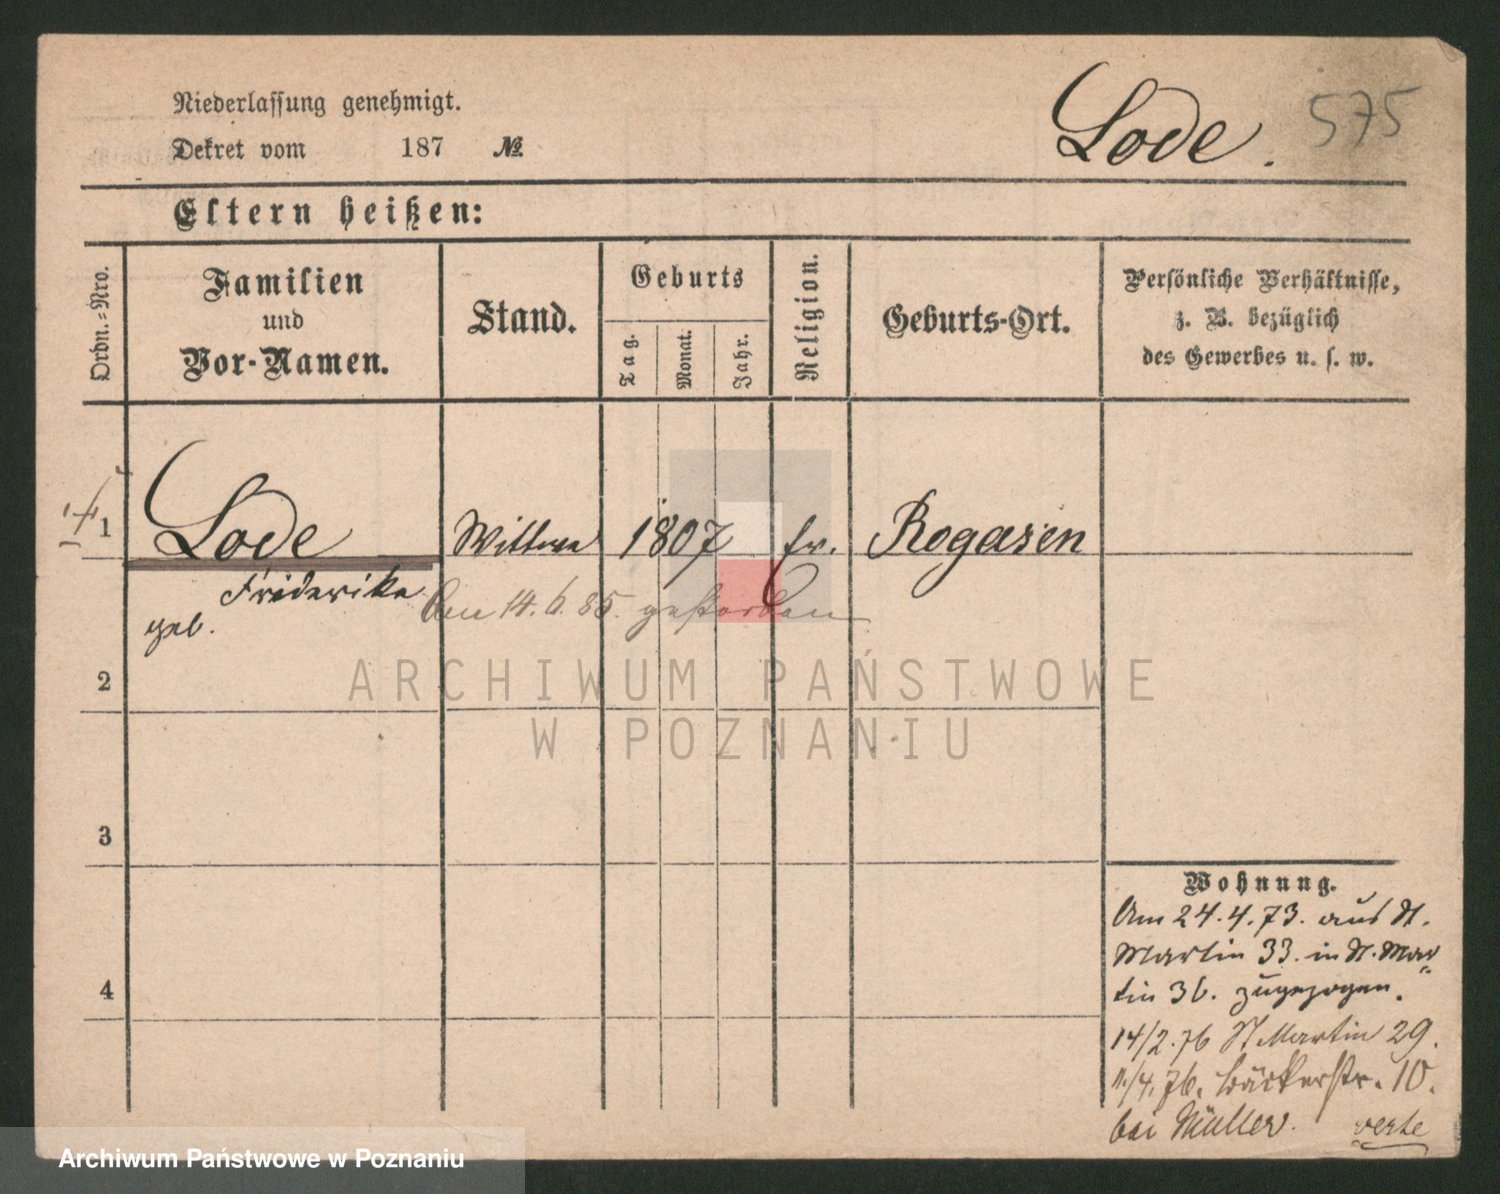 Niederlassung genehmigt.
Dekret vom 187 №
Lode. 575
Eltern heißen:
Ordn.-Nro.
Familien
und
Vor-Namen.
Stand.
Geburts
Tag.
Monat.
Jahr.
Religion.
Geburts-Ort.
Persönliche Verhältnisse,
z. B. bezüglich
des Gewerbes u. s. w.
1 Lode Wittwe 1807 Rogasen
Friderike
geb.
den 14.6.85. gestorben
2
3
4
Wohnung.
Am 24.4.73. aus St.
Martin 33. in St. Mar
tin 36. zugezogen.
14/2.76 St Martin 29.
/4.76. Bäckerstr. 10.
bei Müller. verte
ARCHIWUM PAŃSTWOWE
W POZNANIU
Archiwum Państwowe w Poznaniu